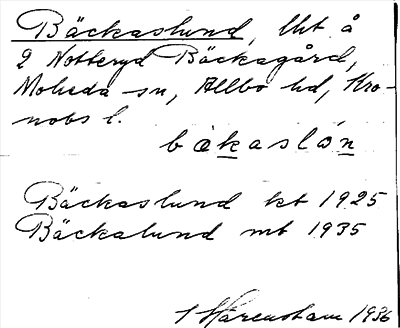 Bäckaslund, lht å
2 Notteryd Bäckagård,
Moheda sn, Allbo hd, Kro-
nobs l.
bakaslón
Bäckaslund kt 1925
Bäckalund mt 1935
Härensham 1936